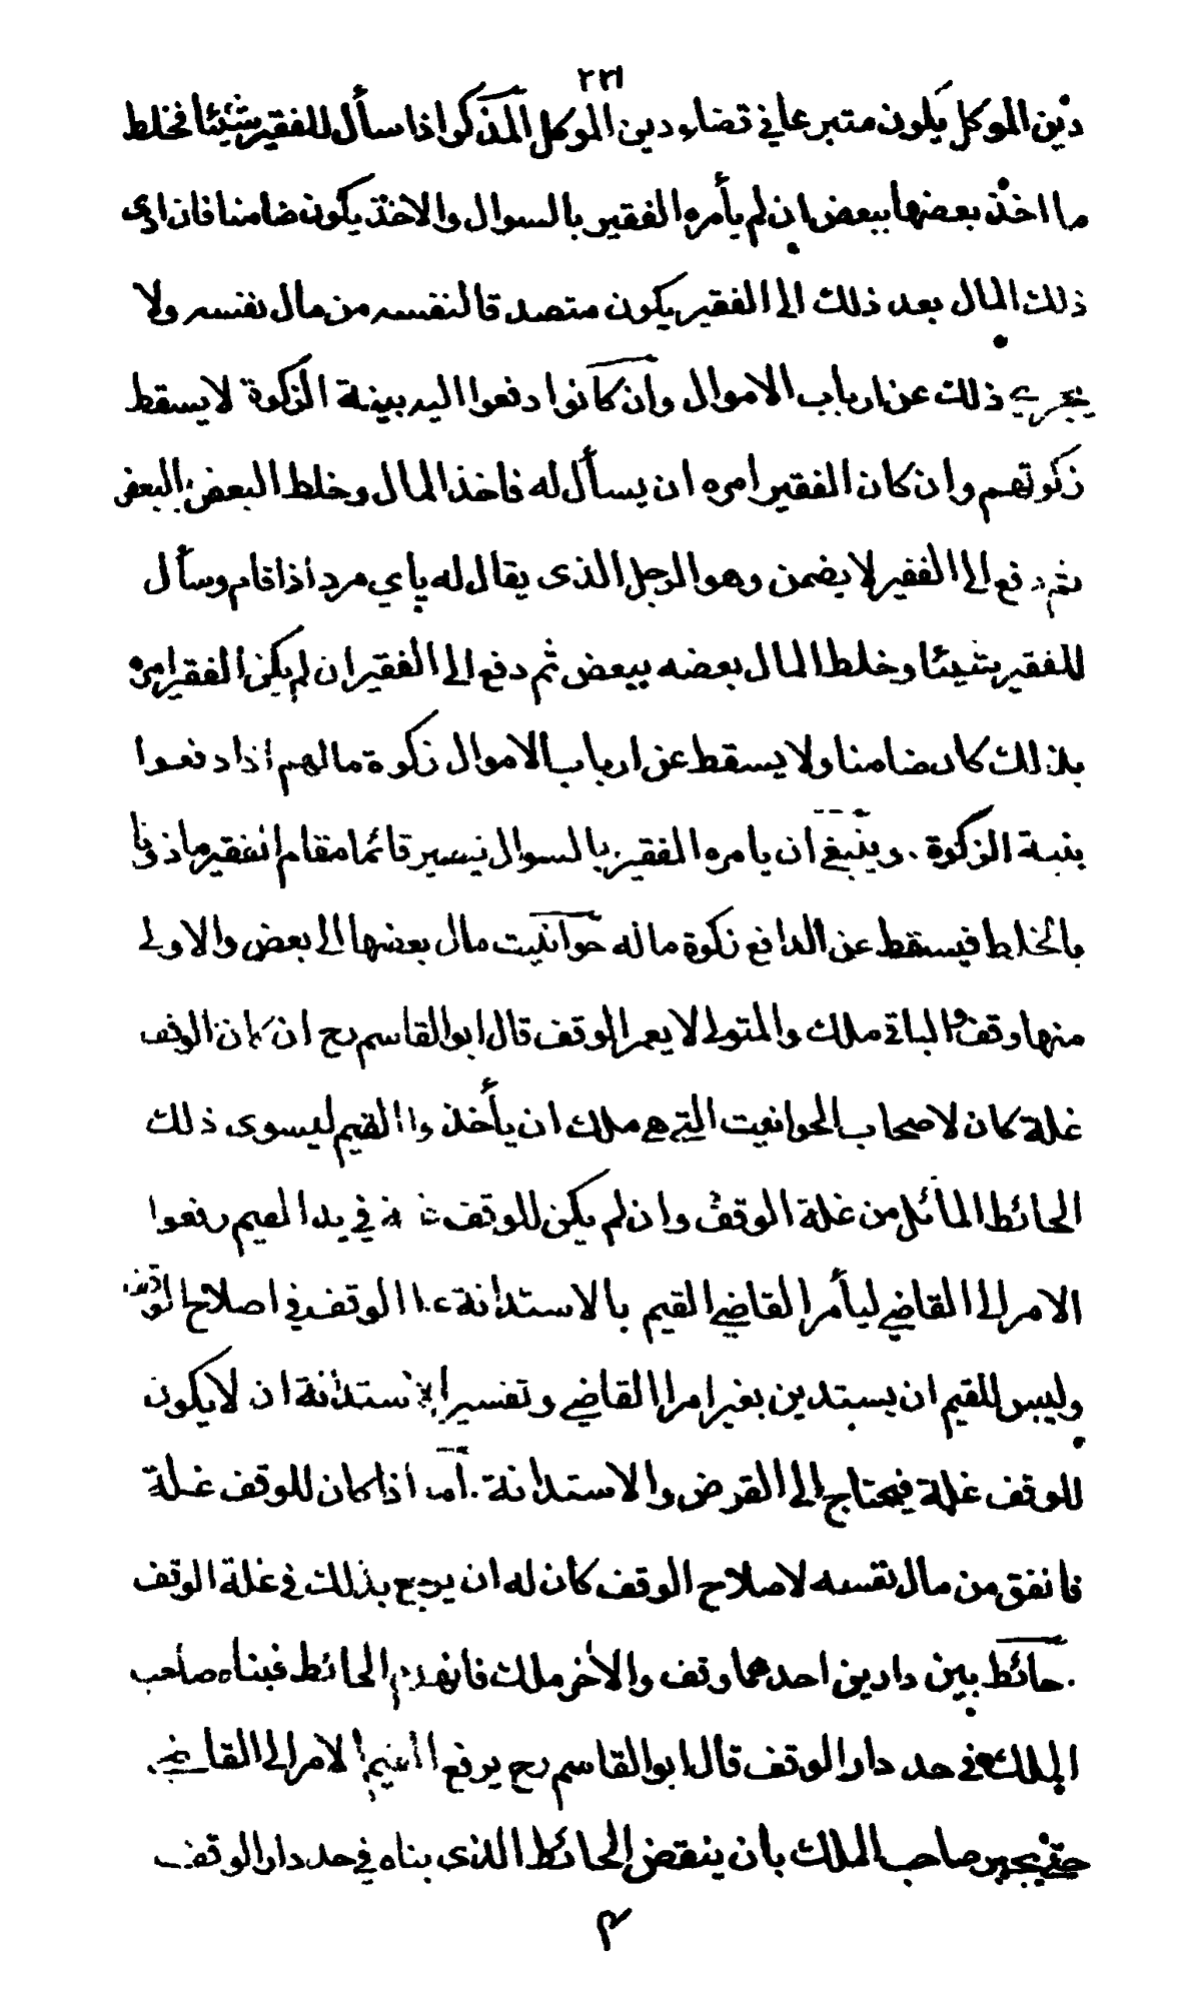 ٢٢١
دين الموكل يكون متبرعا في قضاء دين الموكل المذكر اذا سأل للفقير شيئا فخلط
ما اخذ بعضها ببعض ان لم يأمره الفقير بالسوال والاخذ يكون ضامنا فان ادى
ذلك المال بعد ذلك الى الفقير يكون متصدقا لنفسه من مال نفسه ولا
يجزي ذلك عن ارباب الاموال وان كانوا دفعوا اليه بينة الزكوة لا يسقط
زكوتهم وان كان الفقير امره ان يسأل له فاخذ المال وخلط البعض بالبعض
ثم دفع الى الفقير لا يضمن وهو الرجل الذى يقال له پاي مرد اذا قام وسأل
للفقير شيئا وخلط المال بعضه ببعض ثم دفع الى الفقير ان لم يكن الفقير امره
بذلك كان ضامنا ولا يسقط عن ارباب الاموال زكوة مالهم اذا دفعوا
بنية الزكوة . وينبغي ان يامره الفقير بالسوال فيصير قائما مقام الفقير ماذونا
بالخلط فيسقط عن الدافع زكوة ماله حوانيت مال بعضها الى بعض والاولى
منها وقف والباقي ملك والمتولى لا يعمر الوقف قال ابو القاسم رح ان كان الوقف
غلة كان لاصحاب الحوانيت التي هي ملك ان يأخذوا القيم ليسوى ذلك
الحائط المائل من غلة الوقف وان لم يكن للوقف غلة في يد القيم رفعوا
الامر الى القاضي ليأمر القاضي القيم بالاستدانة على الوقف في اصلاح الوقف
وليس للقيم ان يستدين بغير امر القاضي وتفسير الاستدانة ان لا يكون
للوقف غلة فيحتاج الى القرض والاستدانة . اما اذا كان للوقف غلة
فانفق من مال نفسه لاصلاح الوقف كان له ان يرجع بذلك في غلة الوقف
. حائط بين دارين احدهما وقف والاخر ملك فانهدم الحائط فبناه صاحب
الملك في حد دار الوقف قال ابو القاسم رح يرفع القيم الامر الى القاضي
حتى يجبر صاحب الملك بان ينقض الحائط الذى بناه في حد دار الوقف